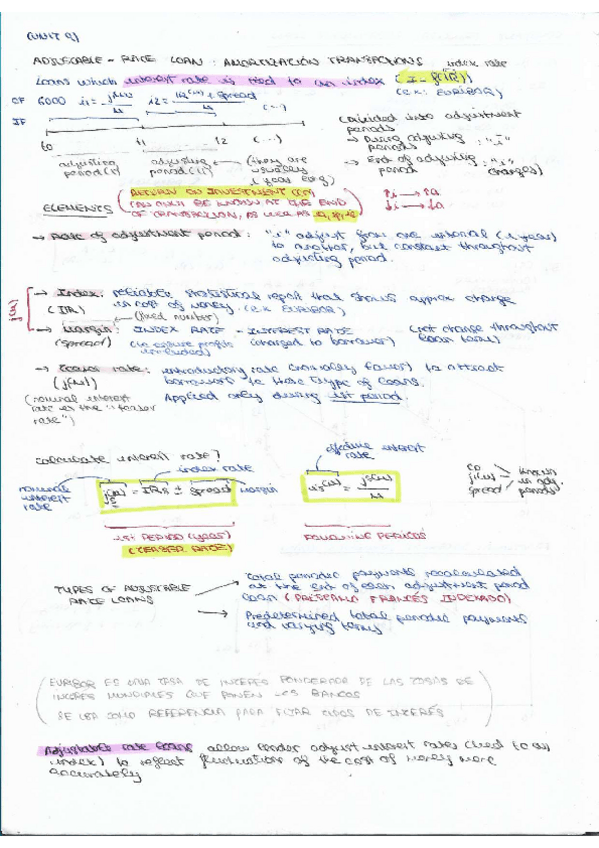 (UNIT 9)
ADJUSTABLE-RATE LOAN: AMORTIZACIÓN TRANSACTIONS
index rate
Loans which interest rate is tied to an index (I = f(IR))
(ex: EURIBOR)
CF 6000 i1 = j(m)/m i2 = IR(m) + spread/m (...)
IF
t0 t1 t2 (...)
Divided into adjustment periods
→ During adjusting periods : "i"
→ End of adjusting period : "i" changes)
adjusting period (1) adjusting period (2) (they are usually 1 year long)
ELEMENTS
RETURN ON INVESTMENT
CAN ONLY BE KNOWN AT THE END
OF TRANSACTION, AS WELL AS
→ Rate of adjustment period: "i" adjust from one interval (1 year)
to another, but constant throughout
adjusting period.
→ Index: reliable statistical report that shows approx change
(IR) in cost of money. (ex EURIBOR)
(fixed number)
→ Margin: INDEX RATE - INTEREST RATE (not change throughout
(spread) (to ensure profits charged to borrower) loan term)
→ Teaser rate: introductory rate (normally lower) to attract
(j(m)) borrowers to these type of loans.
(nominal interest Applied only during 1st period.
rate is the "teaser
rate")
Calculate interest rate?
effective interest rate
index rate
nominal interest rate
js(m) = IRs ± spread
margin
is(m) = js(m)/m
C0
j(m)
spread
known
in adj.
periods
1st PERIOD (years)
(TEASER RATE)
FOLLOWING PERIODS
TYPES OF ADJUSTABLE
RATE LOANS
Total periodic payments recalculated
at the end of each adjustment period
loan (PRÉSTAMO FRANCÉS INDEXADO)
Predetermined total periodic payments
and varying terms.
EURIBOR ES UNA TASA DE INTERÉS PONDERADA DE LAS TASAS DE
INTERÉS MUNDIALES QUE PONEN LOS BANCOS
SE USA COMO REFERENCIA PARA FIJAR TIPOS DE INTERÉS
Adjustable rate loans allow lender adjust interest rates (tied to an
index) to reflect fluctuations of the cost of money more
accurately